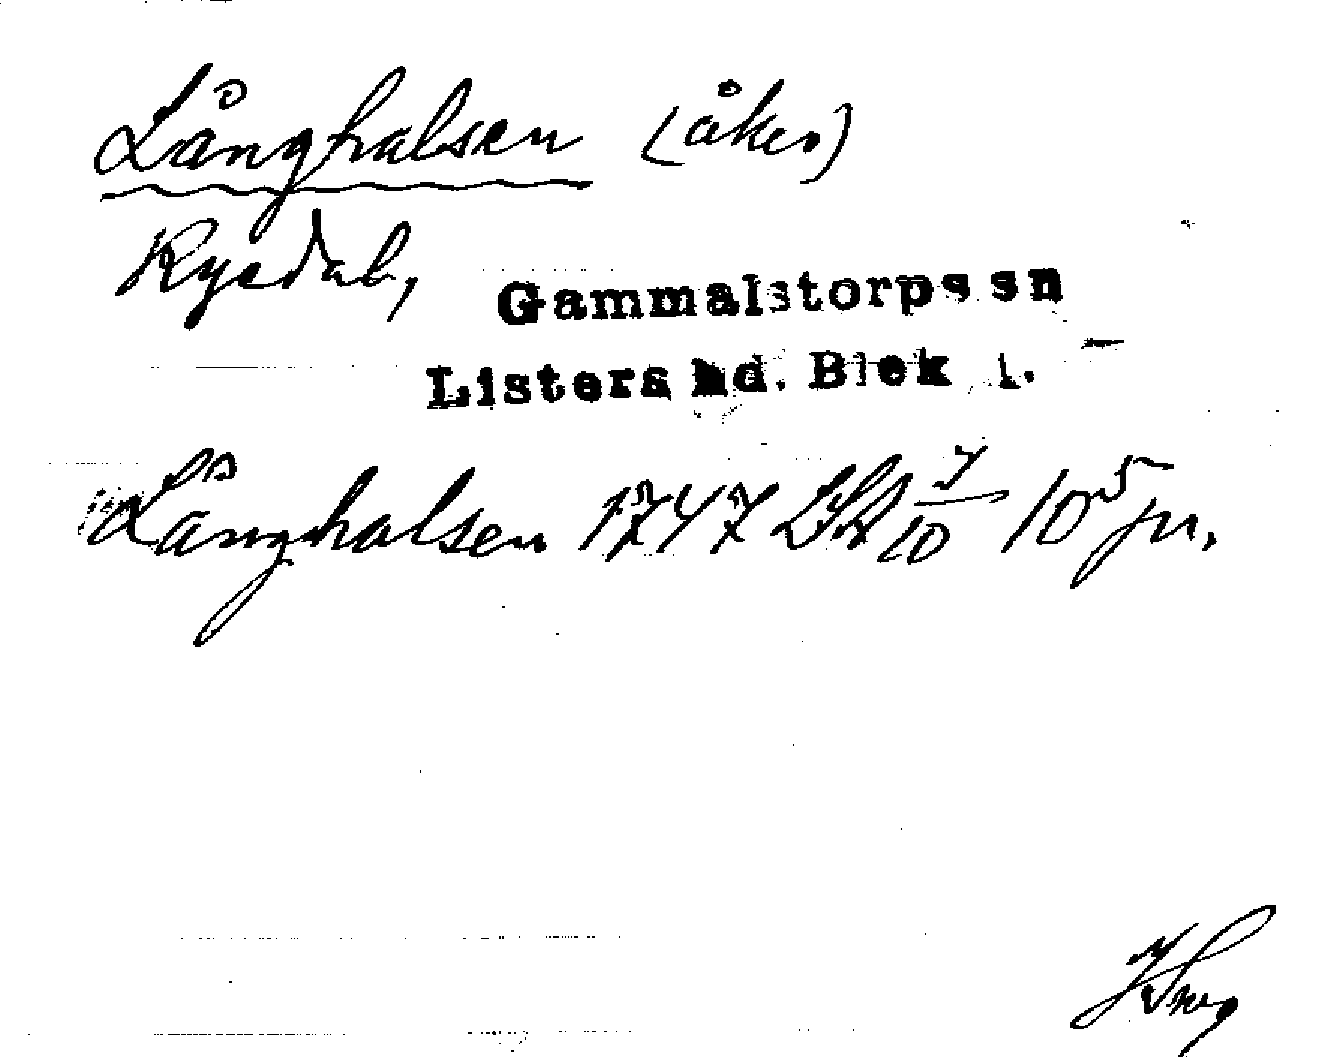 Långhalsen (åker)
Ryedal,
Gammalstorps sn
Listers hd. Blek l.
Långhalsen 1747 LSA 7/10 10 5 ju.